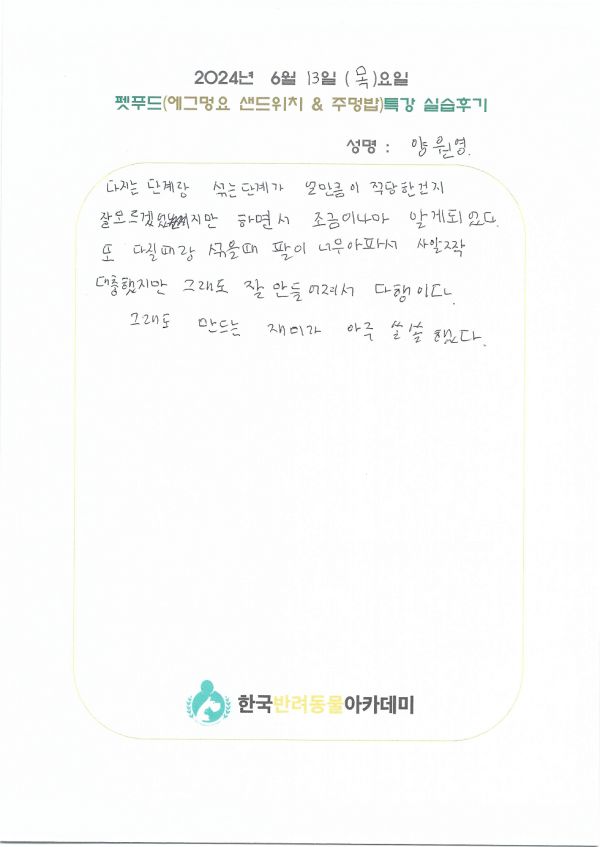 2024년 6월 13일 (목)요일
펫푸드(에그멍요 샌드위치 & 주멍밥)특강 실습후기
성명 : 양원영.
다지는 단계랑 섞는단계가 얼만큼이 적당한건지
잘모르겠었지만 하면서 조금이나마 알게되었다.
또 다질때랑 섞을때 팔이 너무아파서 살짝
대충했지만 그래도 잘 만들어져서 다행이다.
그래도 만드는 재미가 아주 쏠쏠했다.
한국반려동물아카데미